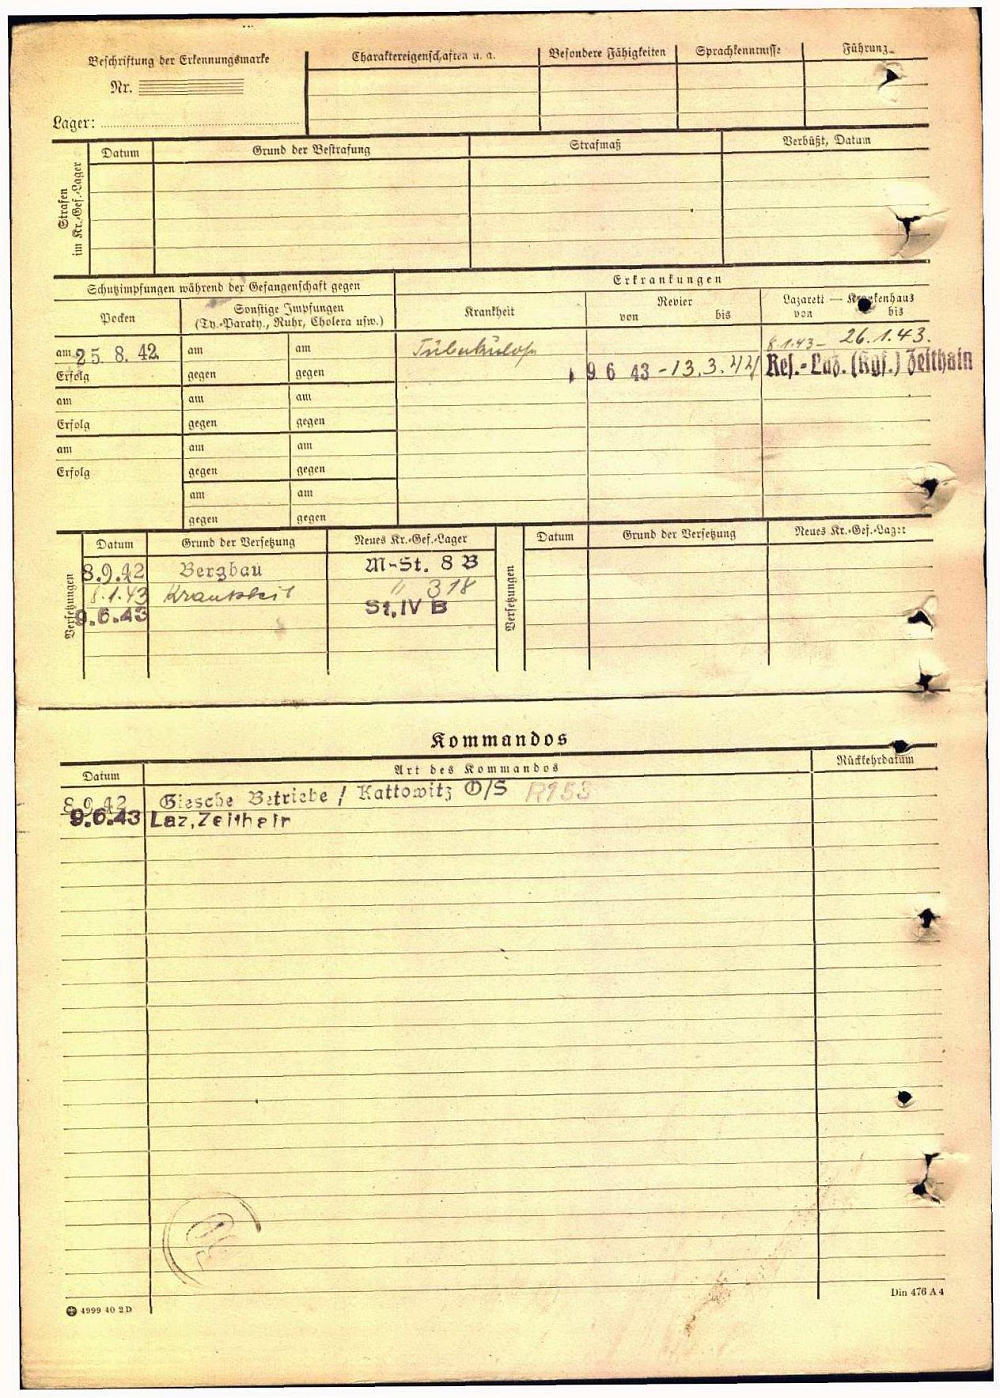 Beschriftung der Erkennungsmarke
Nr.
Lager:
Charaktereigenschaften u. a.
Besondere Fähigkeiten
Sprachkenntnisse
Führung
Strafen
im Kr.-Gef.-Lager
Datum
Grund der Bestrafung
Strafmaß
Verbüßt, Datum
Schutzimpfungen während der Gefangenschaft gegen
Erkrankungen
Pocken
Sonstige Impfungen
(Ty.-Paraty., Ruhr, Cholera usw.)
Krankheit
Revier
von bis
Lazarett — Krankenhaus
von bis
am 25. 8. 42 am am Tuberkulose 8.1.43 – 26.1.43.
Erfolg gegen gegen 9 6 43 - 13.3.44 Res.-Laz. (Kgf.) Zeithain
am am am
Erfolg gegen gegen
am am am
Erfolg gegen gegen
am am
gegen gegen
Versetzungen
Datum Grund der Versetzung Neues Kr.-Gef.-Lager
8.9.42 Bergbau M-St. 8 B
8.1.43 Krankheit " 318
9.6.43 St. IV B
Versetzungen
Datum Grund der Versetzung Neues Kr.-Gef.-Lager
Kommandos
Datum Art des Kommandos Rückkehrdatum
8.9.42 Giesche Betriebe / Kattowitz O/S
9.6.43 Laz, Zeithain
4999 40 2D
Din 476 A 4